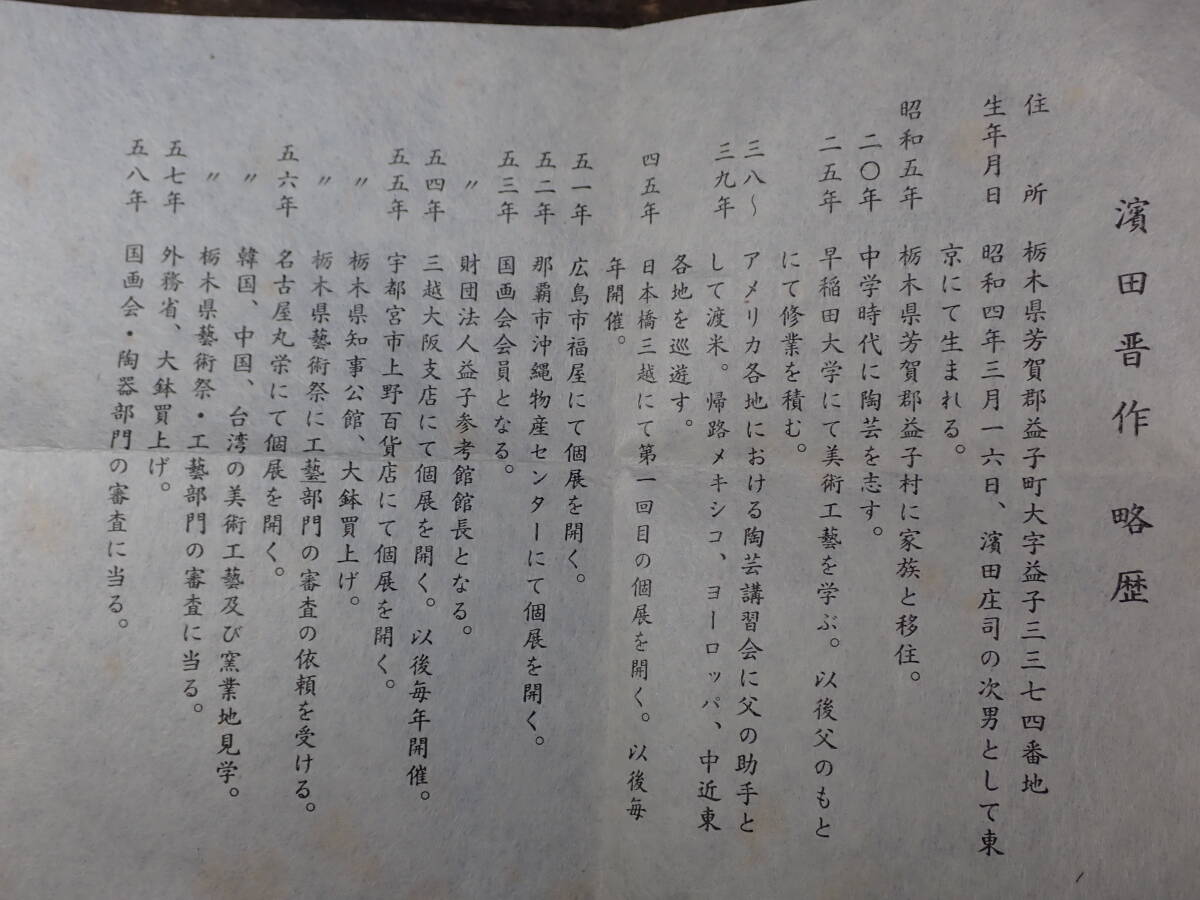 濱田晋作 略歴
住所 栃木県芳賀郡益子町大字益子三三七四番地
生年月日 昭和四年三月一六日、濱田庄司の次男として東
京にて生まれる。
昭和五年 栃木県芳賀郡益子村に家族と移住。
二〇年 中学時代に陶芸を志す。
二五年 早稲田大学にて美術工藝を学ぶ。以後父のもと
にて修業を積む。
三八～ アメリカ各地における陶芸講習会に父の助手と
三九年 して渡米。帰路メキシコ、ヨーロッパ、中近東
各地を巡遊す。
四五年 日本橋三越にて第一回目の個展を開く。以後毎
年開催。
五一年 広島市福屋にて個展を開く。
五二年 那覇市沖縄物産センターにて個展を開く。
五三年 国画会会員となる。
〃 財団法人益子参考館館長となる。
五四年 三越大阪支店にて個展を開く。以後毎年開催。
五五年 宇都宮市上野百貨店にて個展を開く。
〃 栃木県知事公館、大鉢買上げ。
〃 栃木県藝術祭に工藝部門の審査の依頼を受ける。
五六年 名古屋丸栄にて個展を開く。
〃 韓国、中国、台湾の美術工藝及び窯業地見学。
〃 栃木県藝術祭・工藝部門の審査に当る。
五七年 外務省、大鉢買上げ。
五八年 国画会・陶器部門の審査に当る。